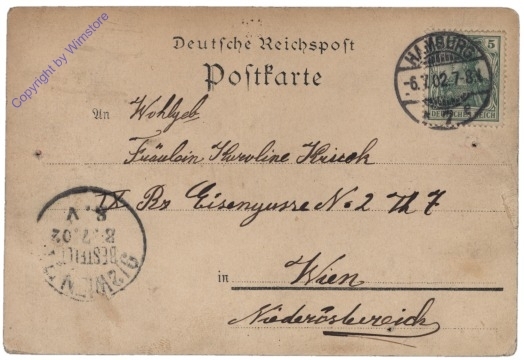 Copyright by Wimstore
Deutsche Reichspost
Postkarte
5
HAMBURG
-6.7.02.7-8
DEUTSCHES REICH
An Wohlgeb
Fräulein Karoline
IX Bz Eisengasse No 2 Th 7
in Wien
Niederösterreich
9/2 WIEN
BESTELLT
8.7.02
8.V